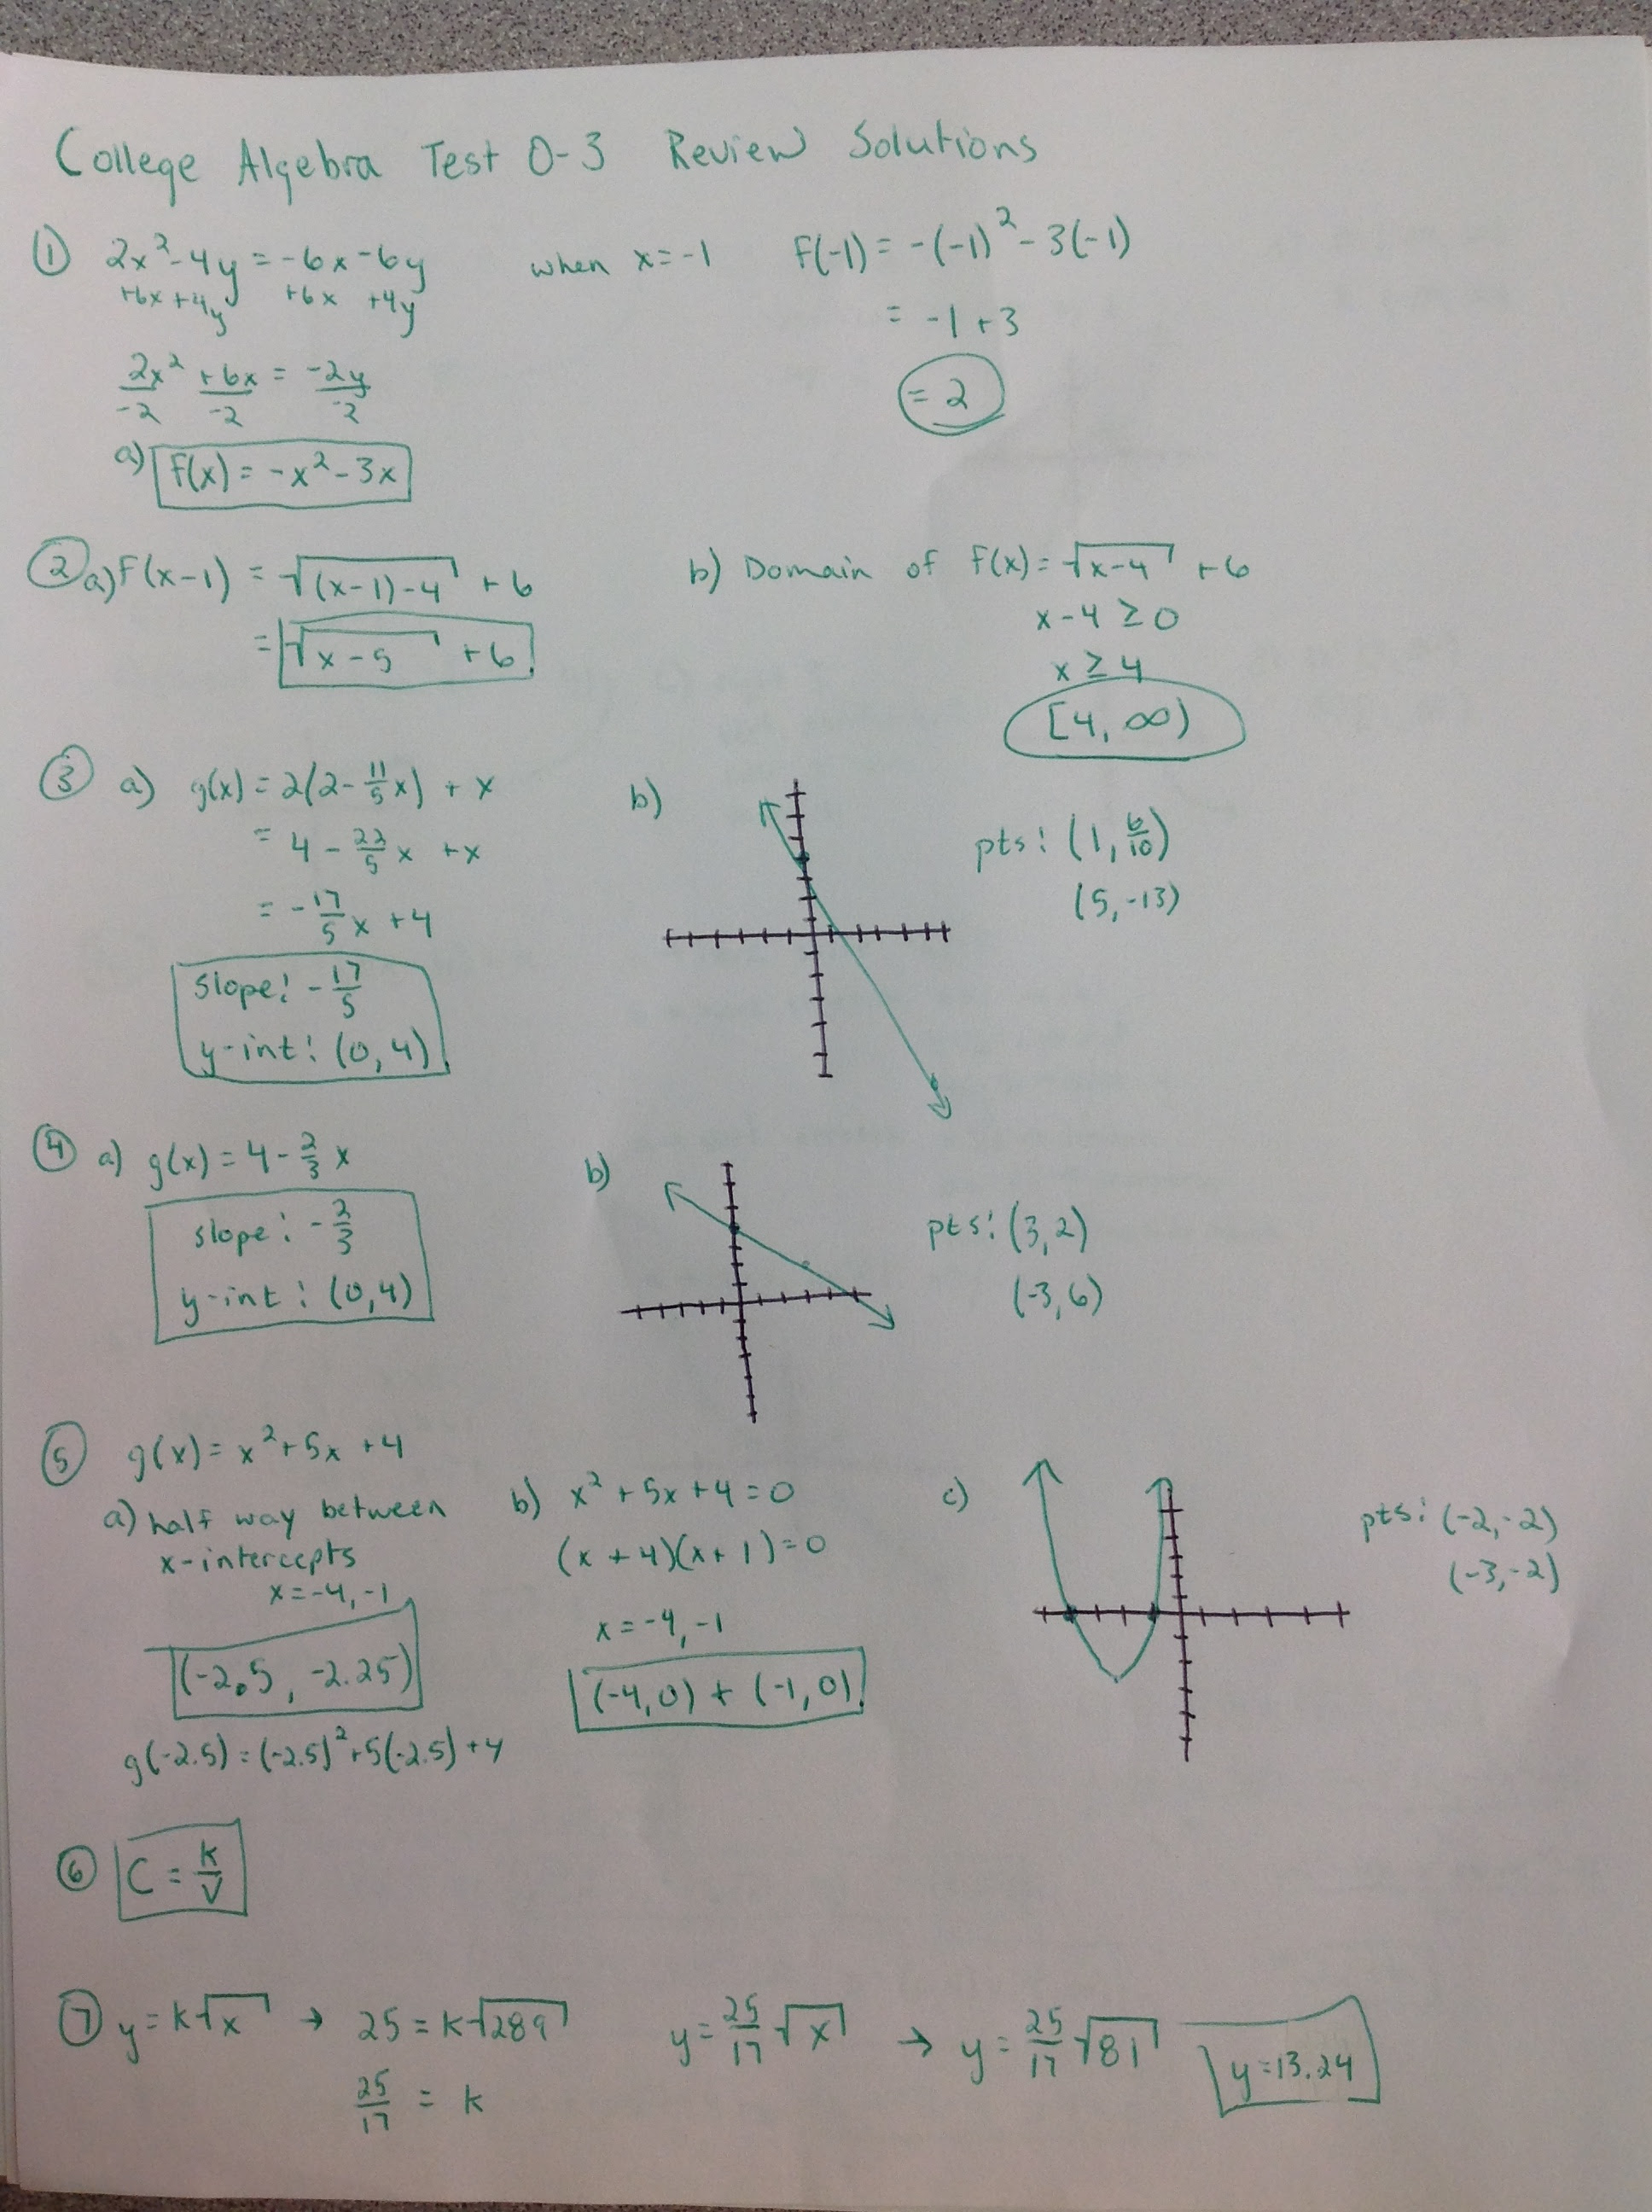 College Algebra Test 0-3 Review Solutions
① 2x²-4y = -6x-6y
+6x+4y +6x +4y
2x²/-2 +6x/-2 = -2y/-2
a) f(x) = -x²-3x
when x=-1 f(-1) = -(-1)²-3(-1)
= -1+3
= 2
② a) f(x-1) = √(x-1)-4 + 6
= √x-5 +6
b) Domain of f(x)= √x-4 +6
x-4 ≥ 0
x ≥ 4
[4, ∞)
③ a) g(x) = 2(2-11/5x) + x
= 4 - 22/5x + x
= -17/5x +4
slope: -17/5
y-int: (0,4)
b)
pts: (1, 6/10)
(5,-13)
④ a) g(x) = 4-2/3x
slope: -2/3
y-int: (0,4)
b)
pts: (3,2)
(-3,6)
⑤ g(x) = x²+5x+4
a) half way between
x-intercepts
x=-4,-1
(-2.5, -2.25)
g(-2.5) = (-2.5)²+5(-2.5)+4
b) x²+5x+4=0
(x+4)(x+1)=0
x=-4,-1
(-4,0) + (-1,0)
c)
pts: (-2,-2)
(-3,-2)
⑥ C = k/V
⑦ y=k√x → 25 = k√289 y = 25/17√x → y = 25/17√81 y=13.24
25/17 = k